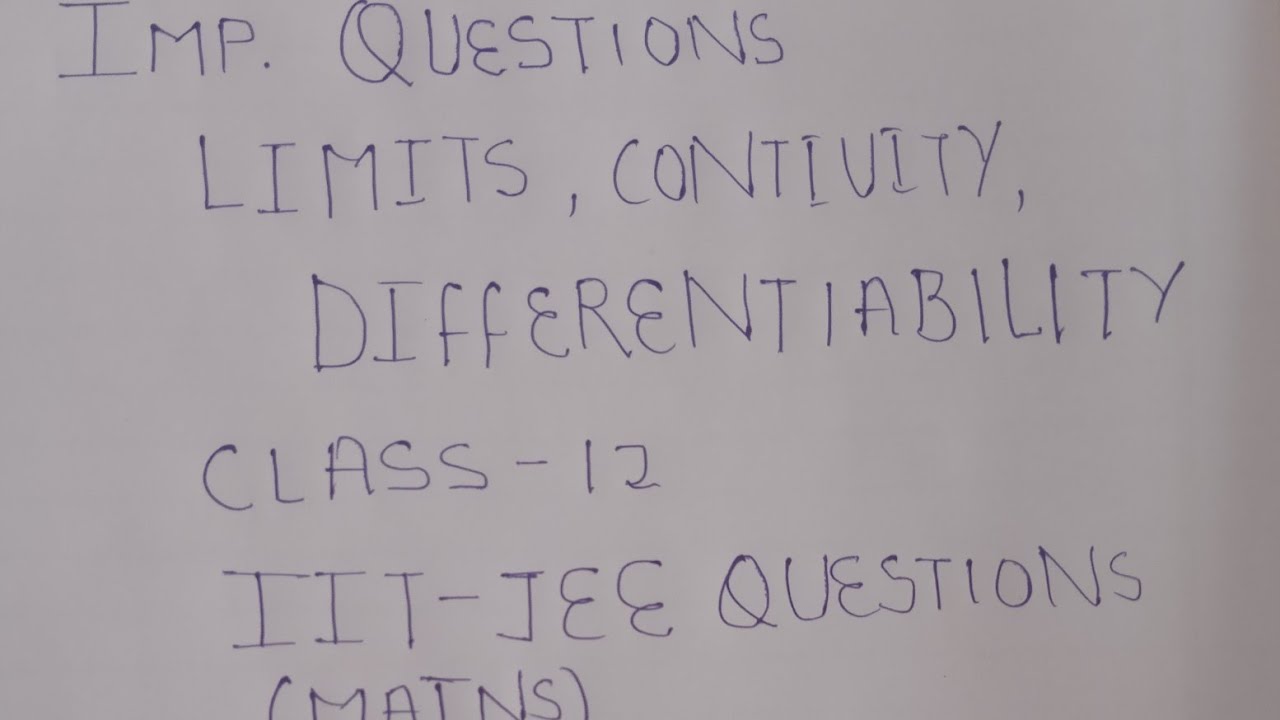 IMP. QUESTIONS
LIMITS, CONTIUITY,
DIFFERENTIABILITY
CLASS-12
IIT-JEE QUESTIONS
(MAINS)